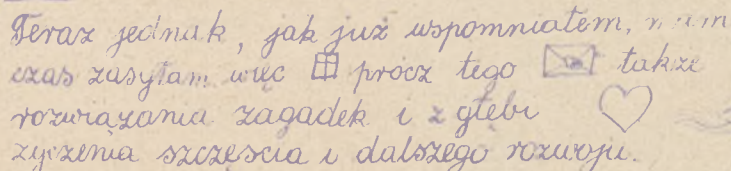 Teraz jednak, jak już wspomniałem, mam
czas zasyłam więc prócz tego także
rozwiązania zagadek i z głębi
życzenia szczęścia i dalszego rozwoju.